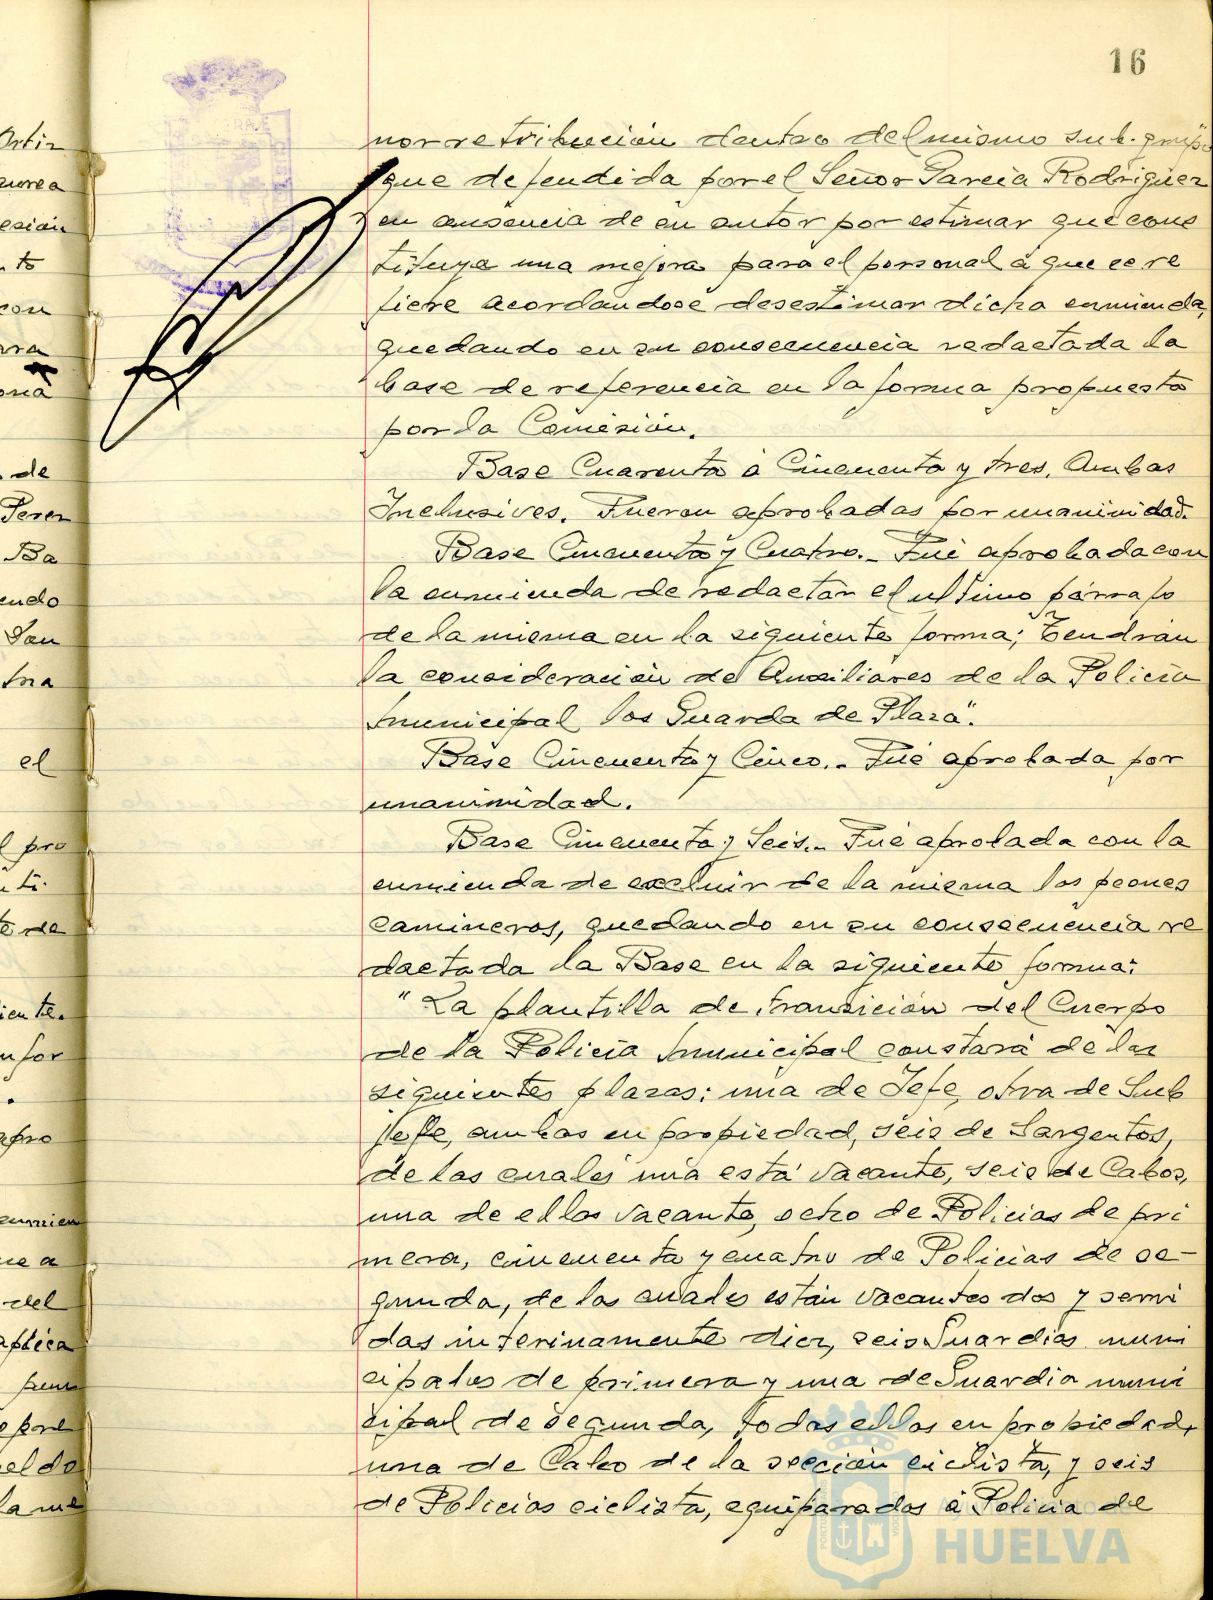 16
nor retribución dentro del mismo sub-grupo
que defendida por el Señor García Rodríguez
en ausencia de su autor por estimar que cons
tituye una mejora para el personal á que se re
fiere acordandose desestimar dicha enmienda,
quedando en su consecuencia redactada la
base de referencia en la forma propuesta
por la Comisión.
Base Cuarenta á Cincuenta y tres, Ambas
Inclusives. Fueron aprobadas por unanimidad.
Base Cincuenta y Cuatro.- Fué aprobada con
la enmienda de redactar el ultimo párrafo
de la misma en la siguiente forma; "Tendrán
la consideración de Auxiliares de la Policía
municipal los Guarda de Plaza".
Base Cincuenta y Cinco.- Fué aprobada por
unanimidad.
Base Cincuenta y Seis.- Fué aprobada con la
enmienda de excluir de la misma los peones
camineros, quedando en su consecuencia re
dactada la Base en la siguiente forma:
"La plantilla de transición del Cuerpo
de la Policía municipal constará de las
siguientes plazas: una de Jefe, otra de Sub
jefe, ambas en propiedad, seis de Sargentos,
de las cuales una está vacante, seis de Cabos,
una de ellas vacante, ocho de Policias de pri
mera, cincuenta y cuatro de Policias de se-
gunda, de las cuales están vacantes dos y servi
das interinamente diez, seis Guardias muni
cipales de primera y una de Guardia muni
cipal de segunda, todas ellas en propiedad,
una de Cabo de la sección ciclista, y seis
de Policias ciclista, equiparados á Policia de
Ayuntamiento de
HUELVA
Ortiz
esión
to
con
de
Perez
Ba
endo
San
el
pro
te de
iente.
nfor
apro
ue a
del
eldo